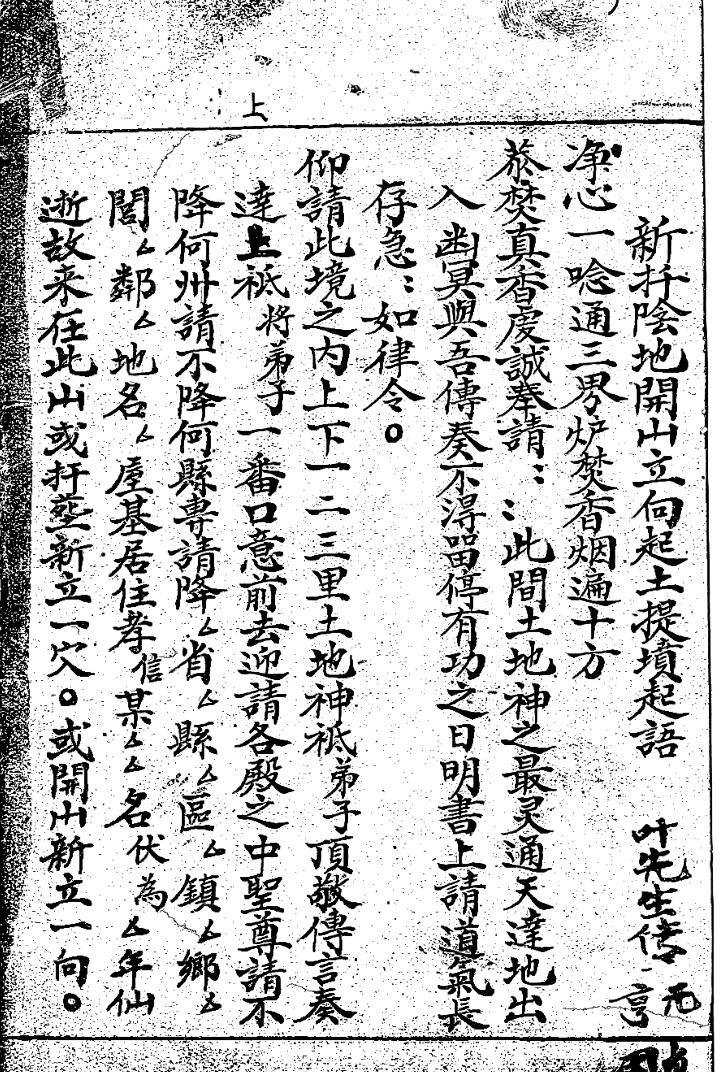 上
新扦陰地開山立向起土提墳起語　叶先生传　元亨
净心一唸通三界炉焚香烟遍十方
焚真香虔誠奉請：：此間土地神之最灵通天達地出
入幽冥與吾傳奏不淂畱停有功之日明書上請道氣長
存急：如律令。
仰請此境之内上下一二三里土地神祗弟子頂敬傳言奏
達上祇将弟子一番口意前去迎請各殿之中聖尊請不
降何州請不降何縣専請降厶省厶縣厶區厶鎮厶鄉厶
閭厶鄰厶地名厶屋基居住孝信某厶厶名伏為厶年仙
逝故来在此山或扦塟新立一穴。或開山新立一向。